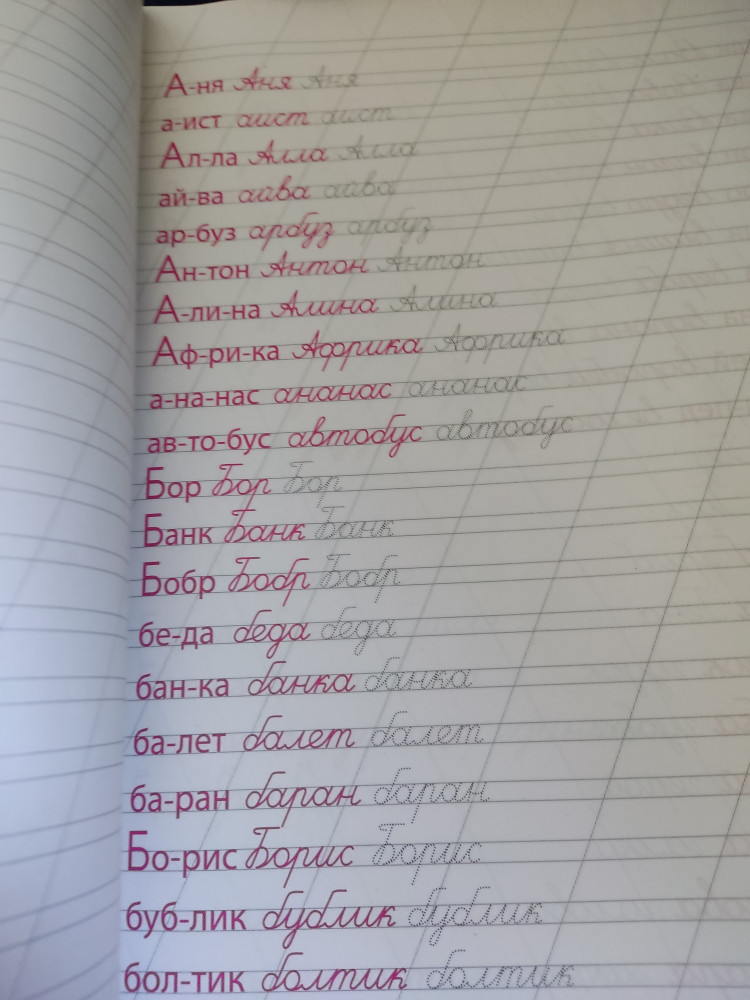 А-ня Аня Аня
а-ист аист аист
Ал-ла Алла Алла
ай-ва айва айва
ар-буз арбуз арбуз
Ан-тон Антон Антон
А-ли-на Алина Алина
Аф-ри-ка Африка Африка
а-на-нас ананас ананас
ав-то-бус автобус автобус
Бор Бор Бор
Банк Банк Банк
Бобр Бобр Бобр
бе-да беда беда
бан-ка банка банка
ба-лет балет балет
ба-ран баран баран
Бо-рис Борис Борис
буб-лик бублик бублик
бол-тик болтик болтик